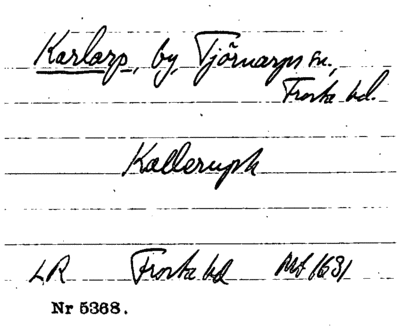 Karlarp, by, Tjörnarps sn.,
Frosta hd.
Kalleruph
LR Frosta hd Mt 1631
Nr 5368.